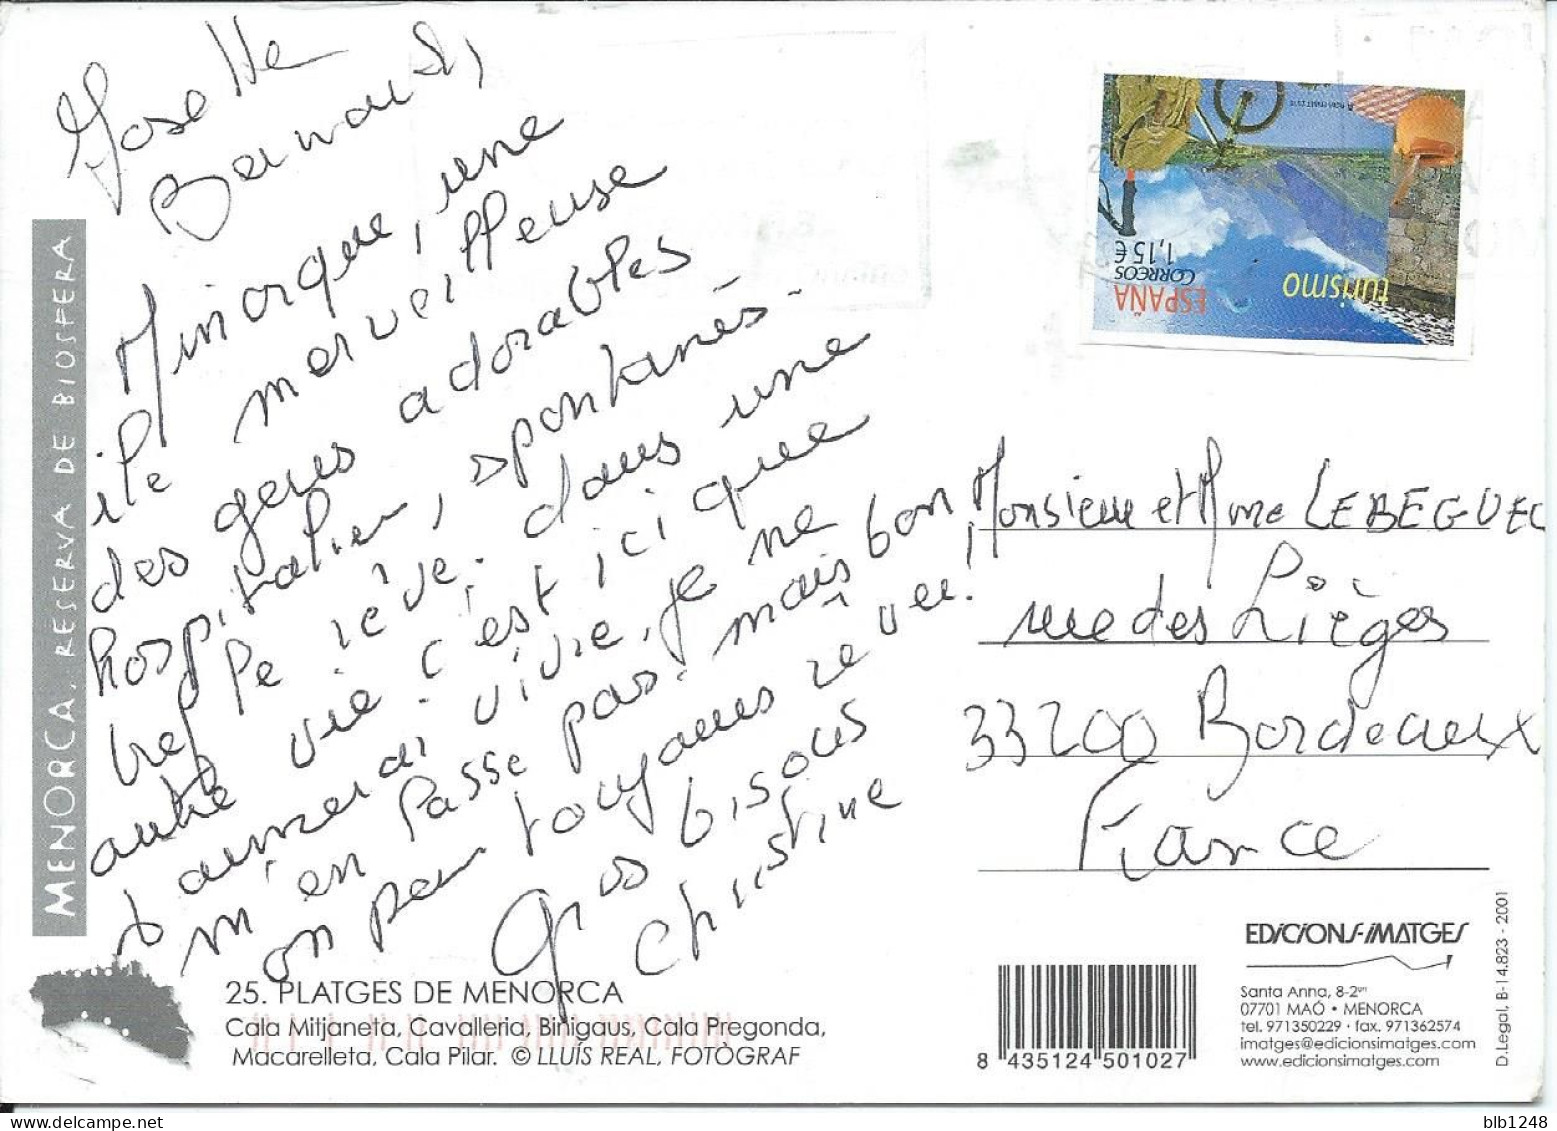 Josette
Bernard,
Minorque, une
île merveilleuse
des gens adorables
hospitalier, spontanés.
bref le rêve. dans une
autre vie. c'est ici que
j'aimerai vivre. je ne
m'en passe pas. mais bon
on peut toujours rêver!
Gros bisous
Christine
MENORCA, RESERVA DE BIOSFERA
turismo
ESPAÑA
CORREOS
1,15€
Monsieur et Mme LEBEGUEC
rue des Lièges
33200 Bordeaux
France
25. PLATGES DE MENORCA
Cala Mitjaneta, Cavalleria, Binigaus, Cala Pregonda,
Macarelleta, Cala Pilar. © LLUÍS REAL, FOTÒGRAF
8 435124 501027
EDICIONS-IMATGES
Santa Anna, 8-2on
07701 MAÓ • MENORCA
tel. 971350229 · fax. 971362574
imatges@edicionsimatges.com
www.edicionsimatges.com
D.Legal, B-14.823 - 2001
blb1248